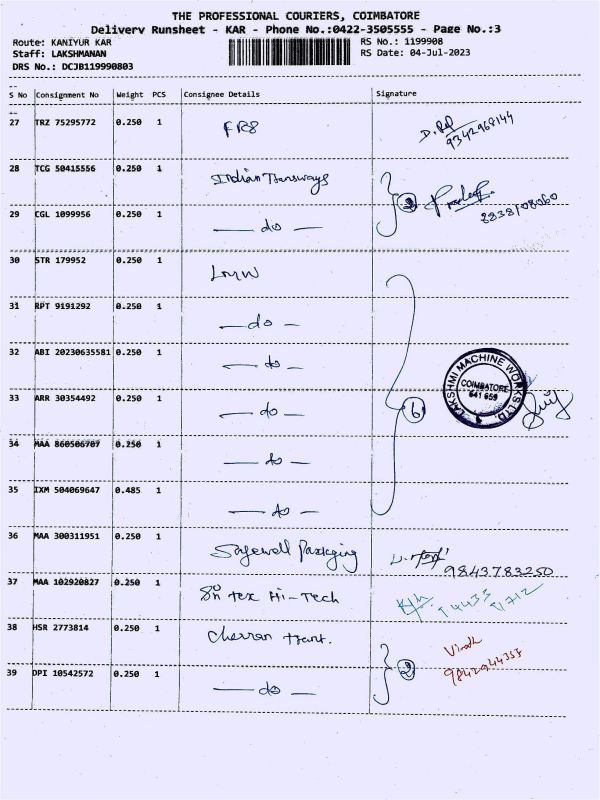 THE PROFESSIONAL COURIERS, COIMBATORE
Delivery Runsheet - KAR - Phone No.:0422-3505555 - Page No.:3
Route: KANIYUR KAR RS No.: 1199908
Staff: LAKSHMANAN RS Date: 04-Jul-2023
DRS No.: DCJB119990803
S No Consignment No Weight PCS Consignee Details Signature
27 TRZ 75295772 0.250 1
9342968144
28 TCG 50415556 0.250 1 Indian Transways
2 Pradeep
29 CGL 1099956 0.250 1 — do —
30 STR 179952 0.250 1 LMW
31 RPT 9191292 0.250 1 — do —
32 ABI 20230635581 0.250 1 — do —
LAKSHMI MACHINE WORKS LTD.
COIMBATORE
641 659
33 ARR 30354492 0.250 1 — do — 6
34 MAA 860506707 0.250 1 — do —
35 IXM 504069647 0.485 1 — do —
36 MAA 300311951 0.250 1 Safewell Packaging
9843783250
37 MAA 102920827 0.250 1 Sri tex Hi-Tech
38 HSR 2773814 0.250 1 Cherran
2
39 DPI 10542572 0.250 1 — do —